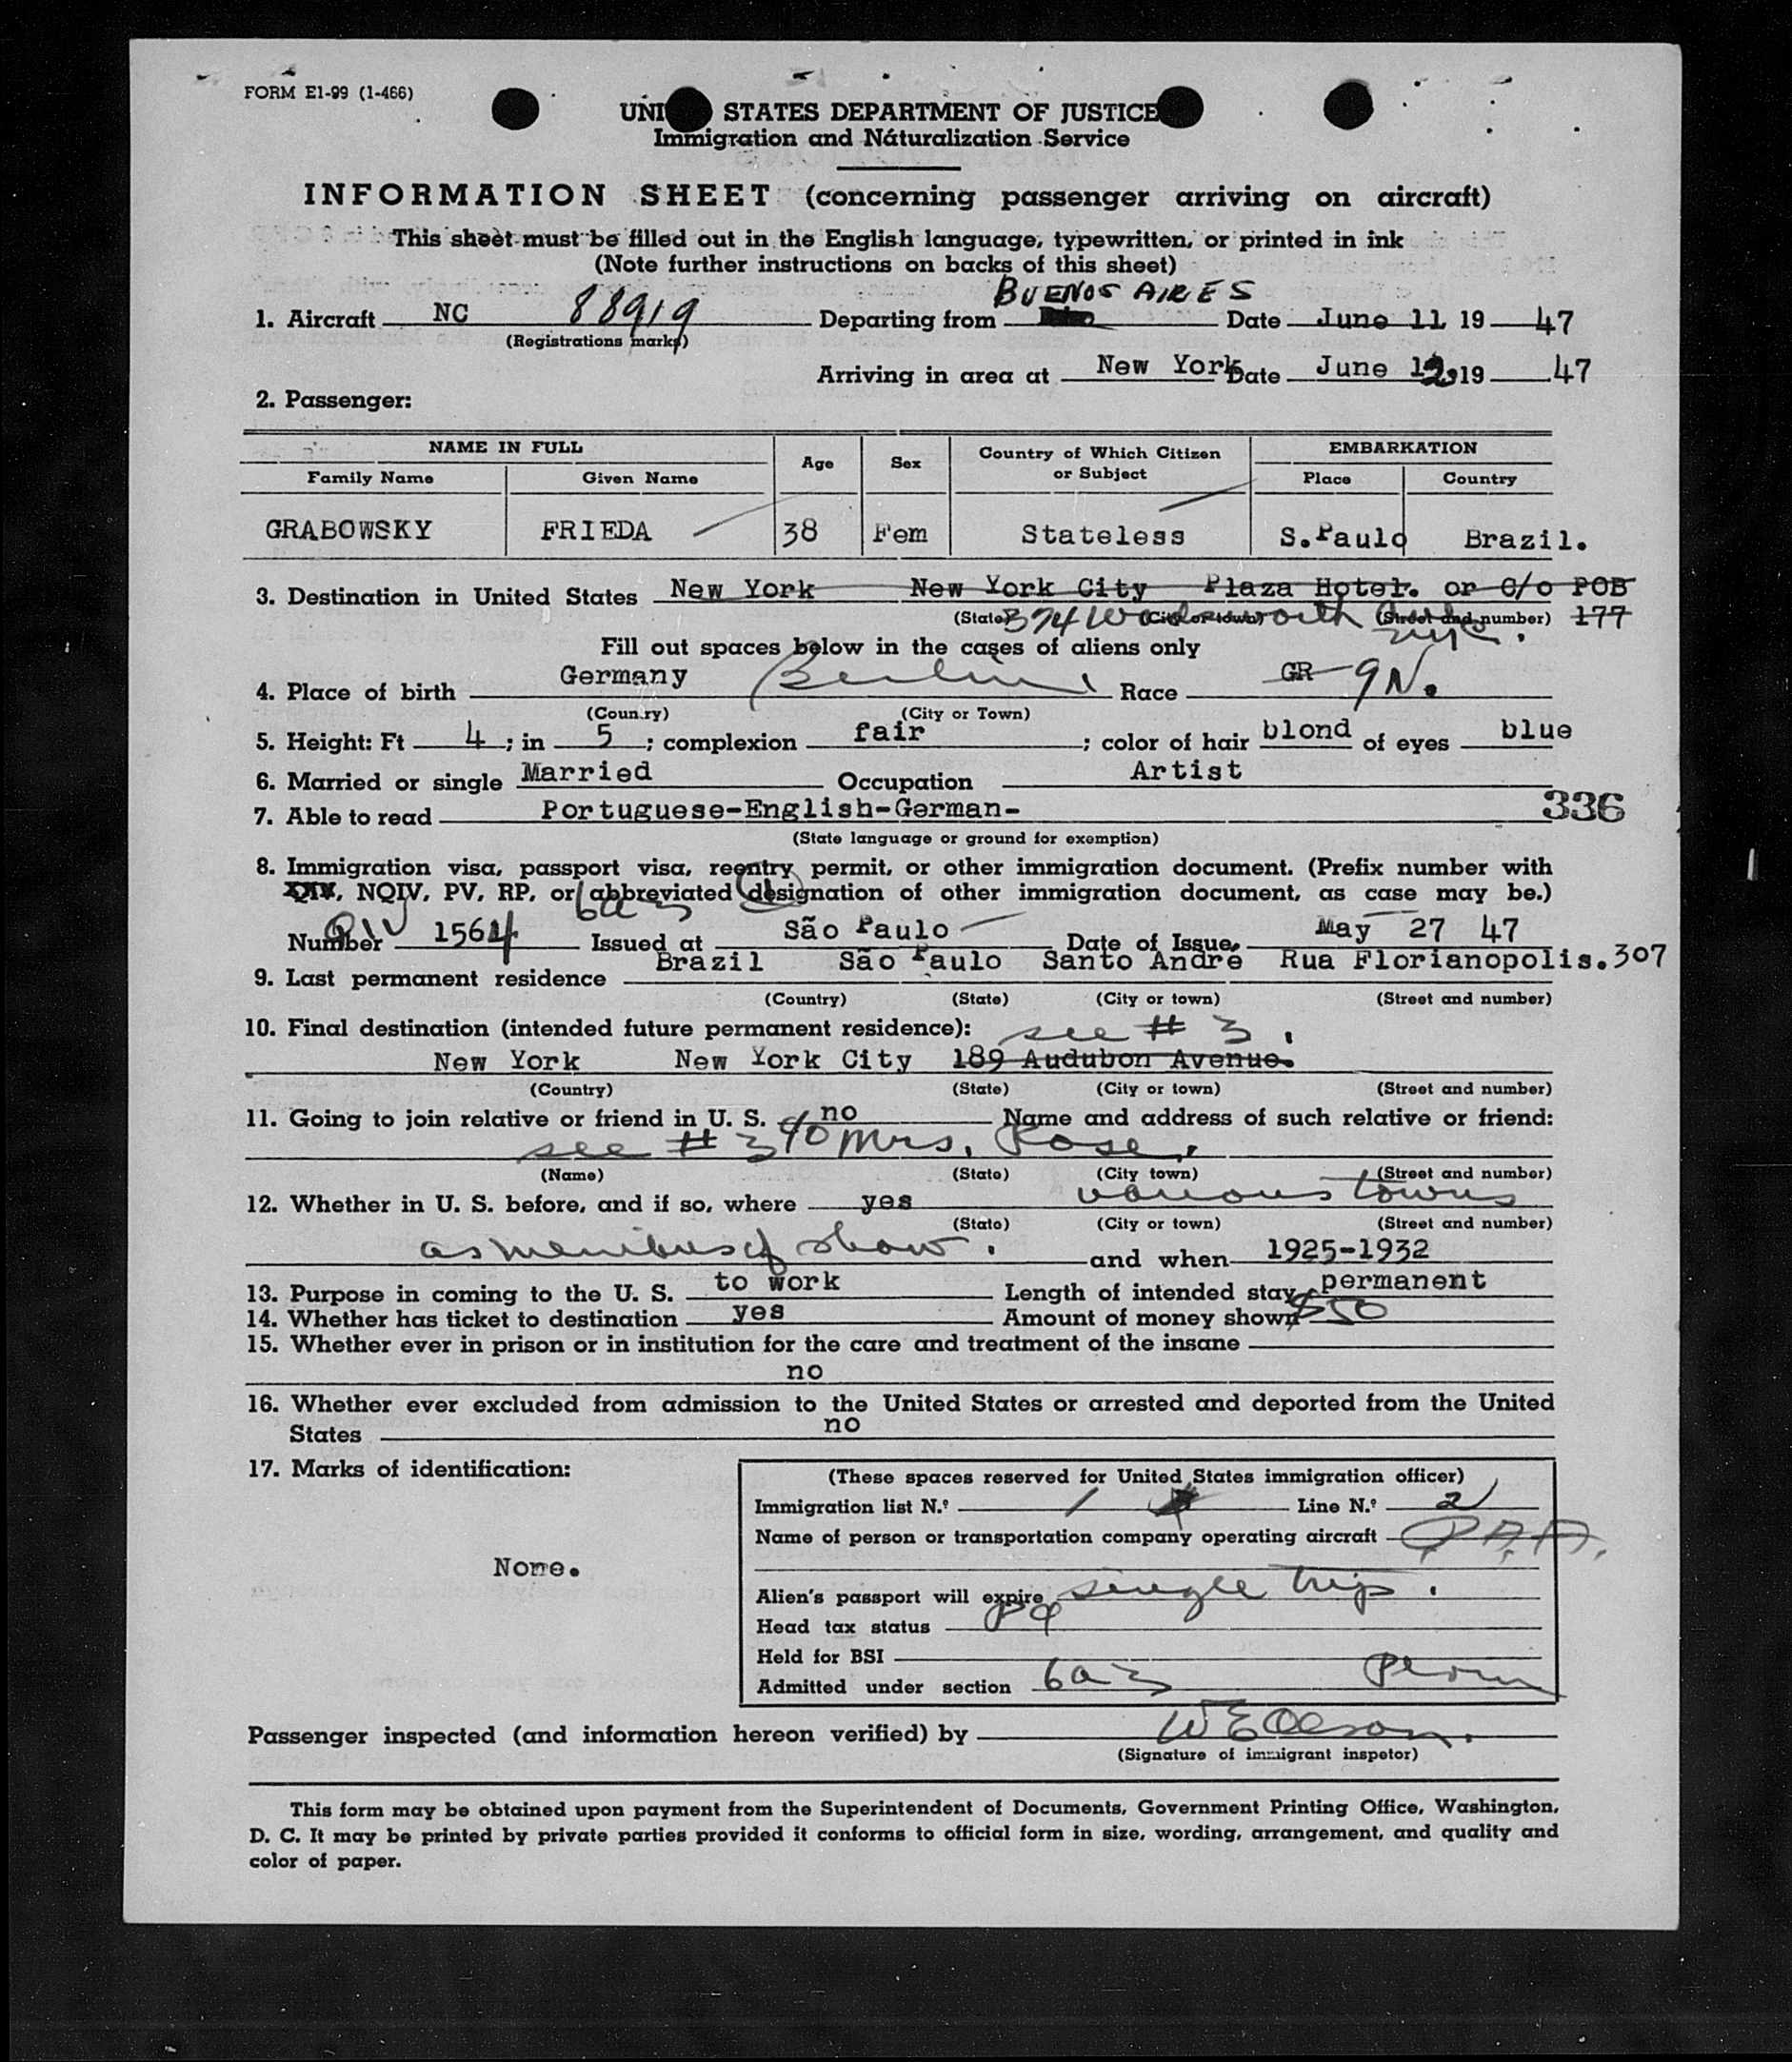 FORM E1-99 (1-466)
UNI STATES DEPARTMENT OF JUSTICE
Immigration and Naturalization Service
INFORMATION SHEET (concerning passenger arriving on aircraft)
This sheet must be filled out in the English language, typewritten, or printed in ink
(Note further instructions on backs of this sheet)
BUENOS AIRES
1. Aircraft NC 88919 Departing from Date June 11 19 47
(Registrations marks)
Arriving in area at New York Date June 12, 19 47
2. Passenger:
NAME IN FULL Age Sex Country of Which Citizen or Subject EMBARKATION
Family Name Given Name Place Country
GRABOWSKY FRIEDA 38 Fem Stateless S.Paulo Brazil.
3. Destination in United States New York New York City Plaza Hotel. or C/o POB
(State) (City or town) (Street and number) 177
374 Wadsworth Ave NYC.
Fill out spaces below in the cases of aliens only
4. Place of birth Germany Berlin Race GR
(Country) (City or Town)
5. Height: Ft 4 ; in 5 ; complexion fair ; color of hair blond of eyes blue
6. Married or single Married Occupation Artist
7. Able to read Portuguese-English-German-
336
(State language or ground for exemption)
8. Immigration visa, passport visa, reentry permit, or other immigration document. (Prefix number with
QIV, NQIV, PV, RP, or abbreviated designation of other immigration document, as case may be.)
6a3
Number QIV 1564 Issued at São Paulo Date of Issue. May 27 47
9. Last permanent residence Brazil São Paulo Santo André Rua Florianopolis.307
(Country) (State) (City or town) (Street and number)
10. Final destination (intended future permanent residence): see # 3.
New York New York City 189 Audubon Avenue.
(Country) (State) (City or town) (Street and number)
11. Going to join relative or friend in U. S. no Name and address of such relative or friend:
see # 3 c/o Mrs. Rose.
(Name) (State) (City town) (Street and number)
12. Whether in U. S. before, and if so, where yes various towns
(State) (City or town) (Street and number)
as member of show. and when 1925-1932
13. Purpose in coming to the U. S. to work Length of intended stay permanent
14. Whether has ticket to destination yes Amount of money shown $50
15. Whether ever in prison or in institution for the care and treatment of the insane
no
16. Whether ever excluded from admission to the United States or arrested and deported from the United
States no
17. Marks of identification:
None.
(These spaces reserved for United States immigration officer)
Immigration list N.º 1 Line N.º 2
Name of person or transportation company operating aircraft P.A.A.
Alien's passport will expire single trip.
Head tax status pd
Held for BSI
Admitted under section 6a3 Perm
Passenger inspected (and information hereon verified) by W E Olson.
(Signature of immigrant inspetor)
This form may be obtained upon payment from the Superintendent of Documents, Government Printing Office, Washington,
D. C. It may be printed by private parties provided it conforms to official form in size, wording, arrangement, and quality and
color of paper.